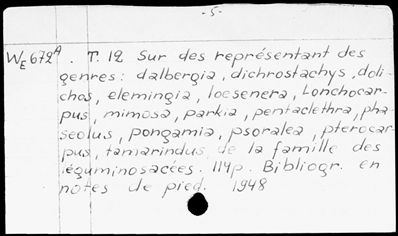 - 5 -
WE 672A. T. 12 Sur des représentant des
genres: dalbergia, dichrostachys, doli-
chos, elemingia, loesenera, Lonchocar-
pus, mimosa, parkia, pentaclethra, pha-
seolus, pongamia, psoralea, pterocar-
pus, tamarindus de la famille des
léguminosacées. 114p. Bibliogr. en
notes de pied. 1948